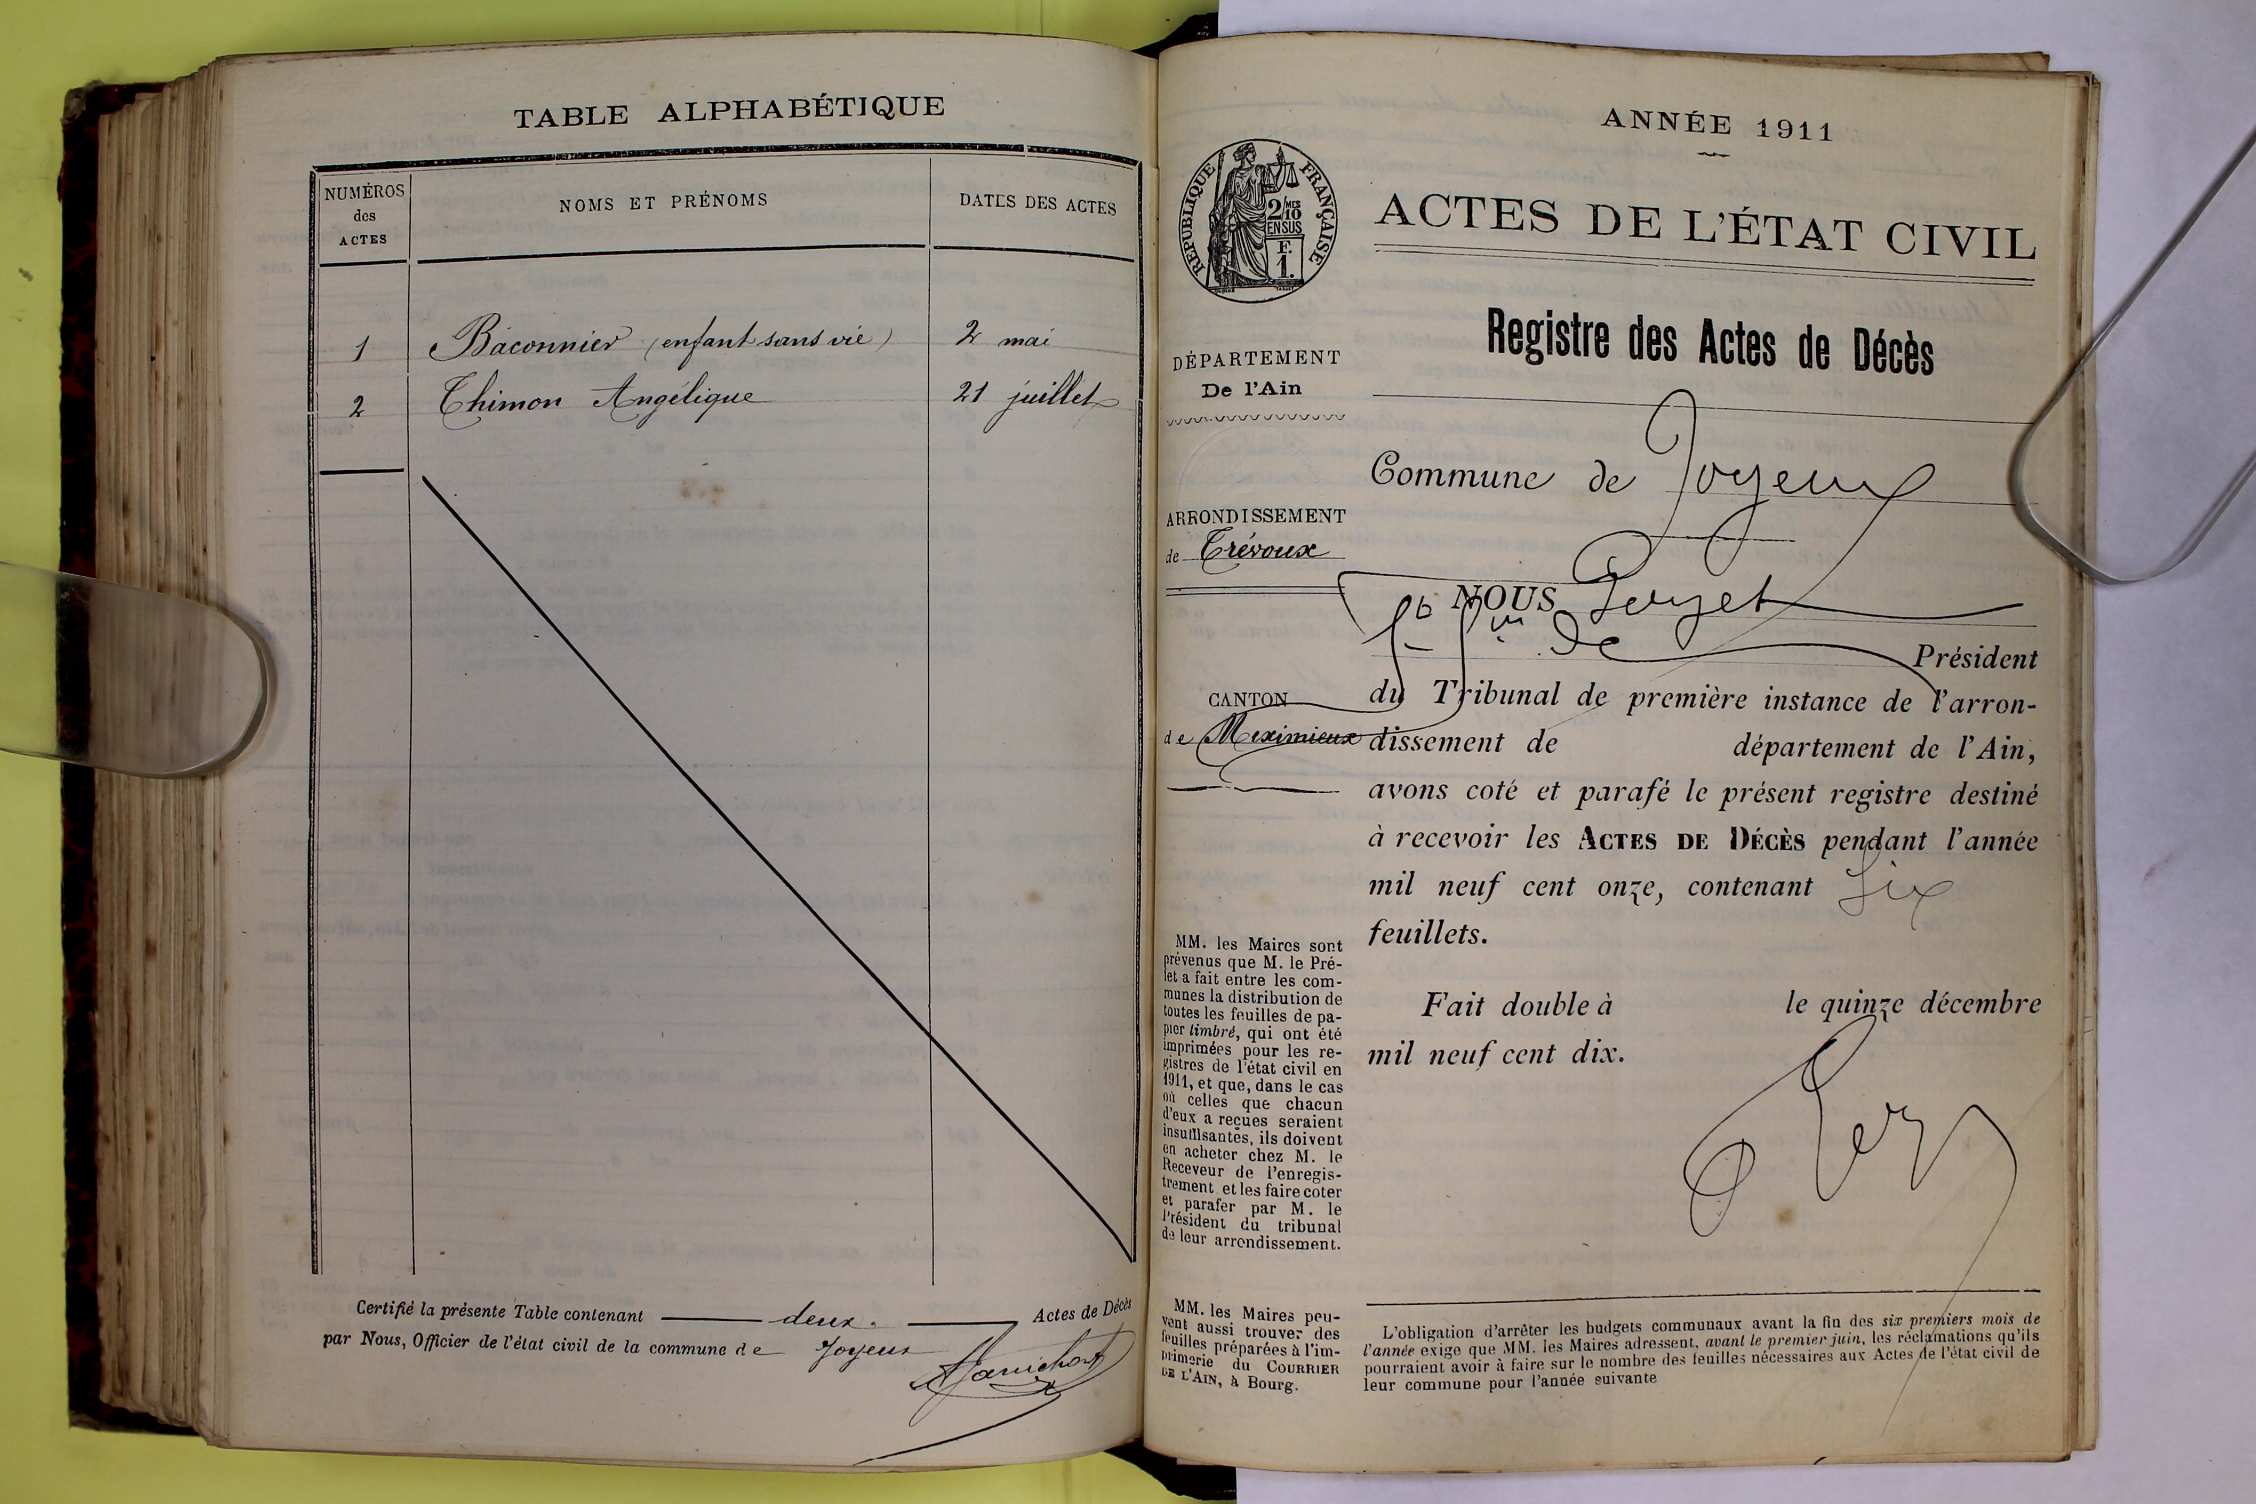 TABLE ALPHABÉTIQUE
NUMÉROS des ACTES
NOMS ET PRÉNOMS
DATES DES ACTES
1 Baconnier (enfant sans vie) 2 mai
2 Thimon Angélique 21 juillet
Certifié la présente Table contenant deux. Actes de Décès
par Nous, Officier de l'état civil de la commune de Joyeux
ANNÉE 1911
RÉPUBLIQUE FRANÇAISE
2/10 MES
EN SUS
F.
1.
ACTES DE L'ÉTAT CIVIL
Registre des Actes de Décès
DÉPARTEMENT
De l'Ain
ARRONDISSEMENT
de Trévoux
CANTON
de Meximieux
MM. les Maires sont
prévenus que M. le Pré-
fet a fait entre les com-
munes la distribution de
toutes les feuilles de pa-
pier timbré, qui ont été
imprimées pour les re-
gistres de l'état civil en
1911, et que, dans le cas
où celles que chacun
d'eux a reçues seraient
insuffisantes, ils doivent
en acheter chez M. le
Receveur de l'enregis-
trement et les faire coter
et parafer par M. le
Président du tribunal
de leur arrondissement.
MM. les Maires peu-
vent aussi trouver des
feuilles préparées à l'im-
primerie du COURRIER
DE L'AIN, à Bourg.
Commune de Joyeux
NOUS
Président
du Tribunal de première instance de l'arron-
dissement de département de l'Ain,
avons coté et parafé le présent registre destiné
à recevoir les ACTES DE DÉCÈS pendant l'année
mil neuf cent onze, contenant six
feuillets.
Fait double à le quinze décembre
mil neuf cent dix.
L'obligation d'arrêter les budgets communaux avant la fin des six premiers mois de
l'année exige que MM. les Maires adressent, avant le premier juin, les réclamations qu'ils
pourraient avoir à faire sur le nombre des feuilles nécessaires aux Actes de l'état civil de
leur commune pour l'année suivante